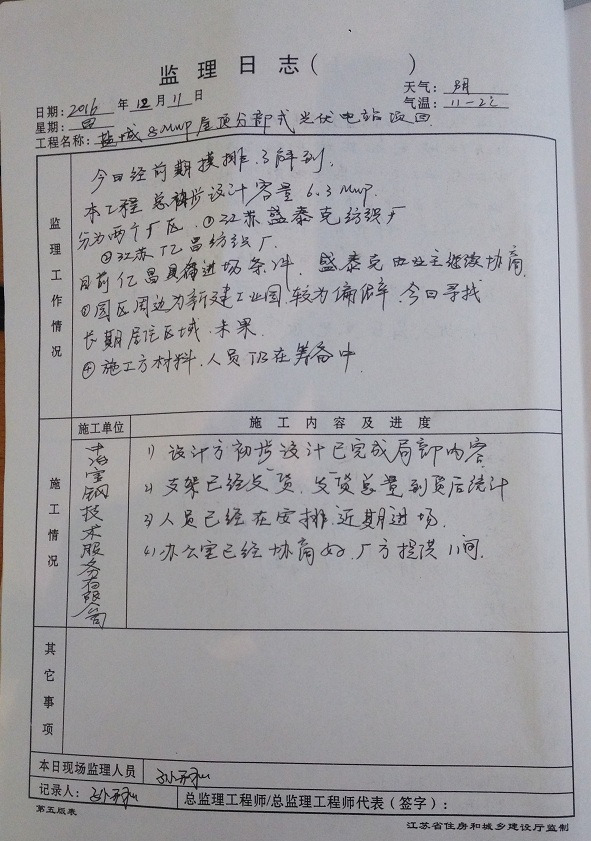 监理日志(          )
日期: 2016 年 12 月 11 日
天气: 阴
星期: 四
气温: 11-2℃
工程名称: 盐城8MWP屋顶分部式光伏电站项目
监理工作情况
今日经前期摸排、了解到,
本工程总初步设计容量6.3MWP.
分为两个厂区.①江苏盛泰克纺织厂
②江苏亿昌纺织厂.
目前亿昌具备进场条件,盛泰克由业主继续协商
①园区周边为新建工业园,较为偏僻,今日寻找
长期居住区域.未果.
④施工方材料,人员仍在筹备中.
施工情况
施工单位
施工内容及进度
中冶宝钢技术服务有限公司
1)设计方初步设计已完成局部内容
2)支架已经发货,发货总量到货后统计
3)人员已经在安排,近期进场.
4)办公室已经协商好.厂方提供1间.
其它事项
本日现场监理人员
记录人:
总监理工程师/总监理工程师代表(签字):
第五版表
江苏省住房和城乡建设厅监制